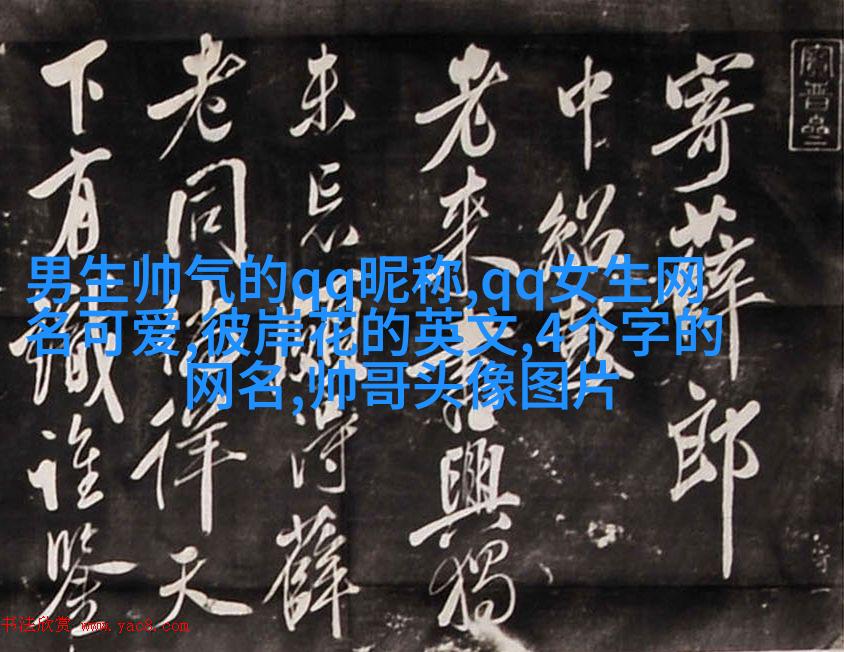 寄薛郎
中紹
老来興獨
未忘得薛
老同徉天
下有識誰鑒
男生帅气的qq昵称,qq女生网
名可爱,彼岸花的英文,4个字的
网名,帅哥头像图片
书法欣赏 www.yac8.com